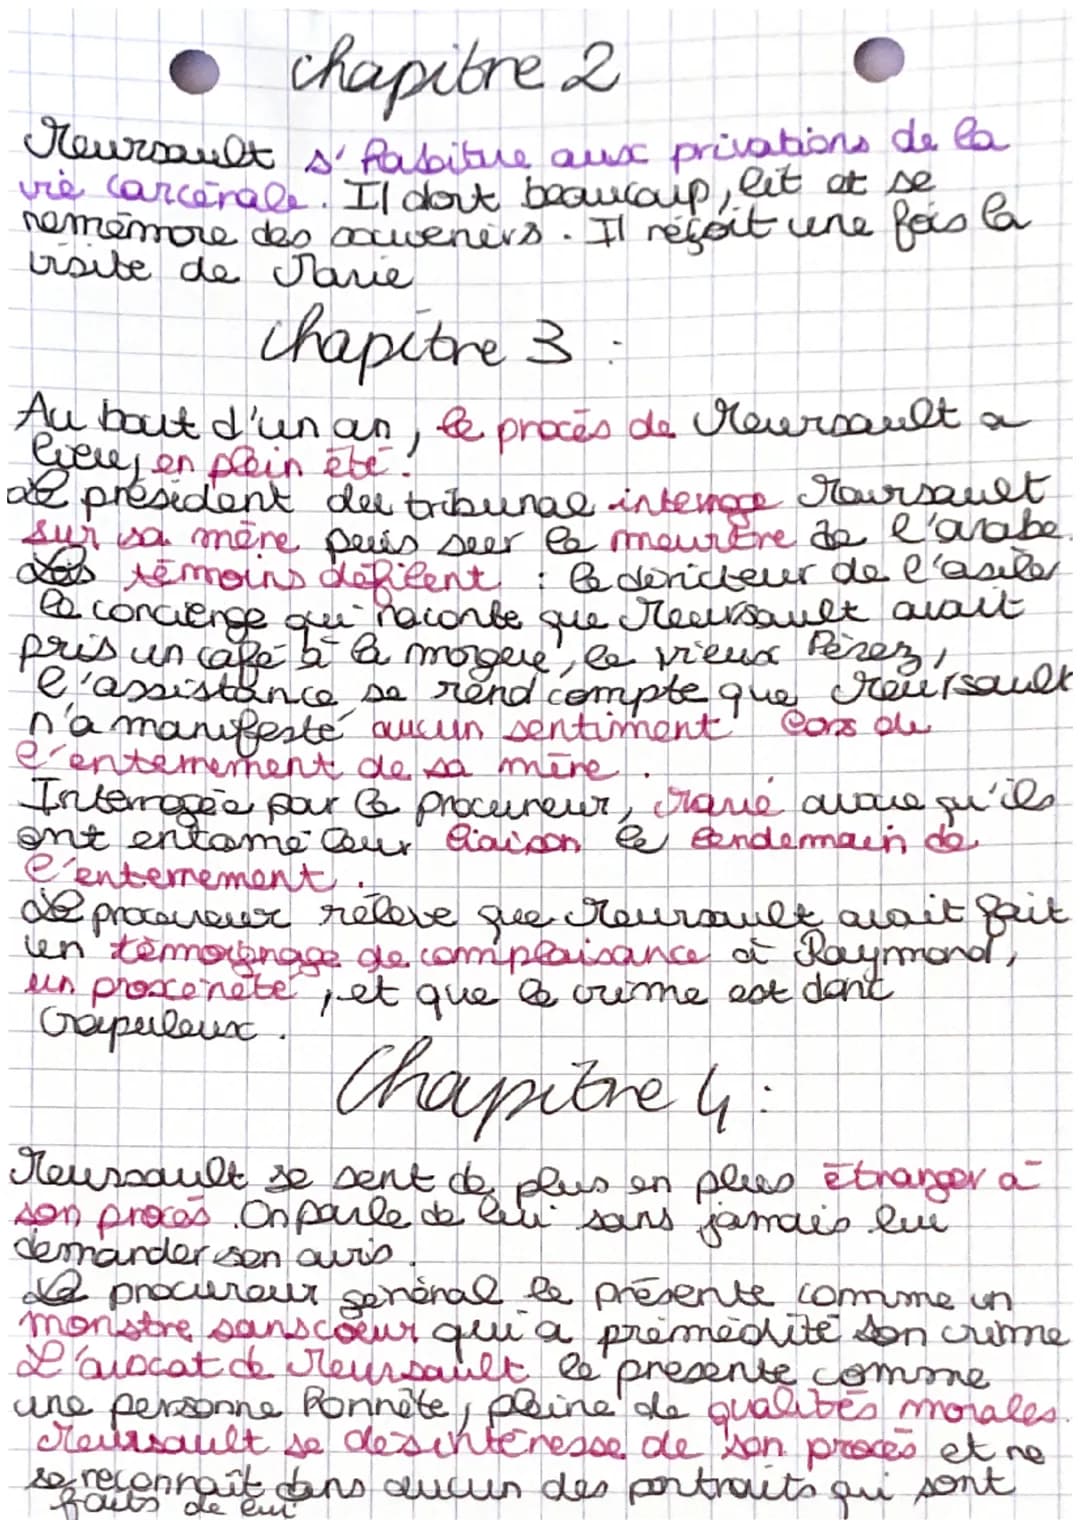 chapitre 2
Meursault s'habitue aux privations de la
vie carcérale. Il dort beaucoup, lit et se
remémore des souvenirs. Il réçoit une fois la
visite de Marie
chapitre 3 :
Au bout d'un an, le procès de Meursault a
lieu, en plein été.
Le président du tribunal interroge Meursault
sur sa mère puis sur le meurtre de l'arabe.
Les témoins défilent : le diricteur de l'asile,
le concierge qui raconte que Meursault avait
pris un café à la morgue, le vieux Pérez,
l'assistance se rend compte que Meursault
n'a manifesté aucun sentiment lors de
l'enterrement de sa mère.
Interrogée par le procureur, Marie avoue qu'ils
ont entamé leur liaison le lendemain de
l'enterrement.
Le procureur rélève que Meursault avait fait
un témoignage de complaisance à Raymond,
un proxénète, et que le crime est donc
Crapuleux.
Chapitre 4 :
Meursault se sent de plus en plus étranger à
son procès. On parle de lui sans jamais lui
demander son avis.
Le procureur général le présente comme un
monstre sans cœur qui a prémédité son crime
L'avocat de Meursault le présente comme
une personne honnête, pleine de qualités morales.
Meursault se désintéresse de son procès et ne
se reconnaît dans aucun des portraits qui sont
faits de lui